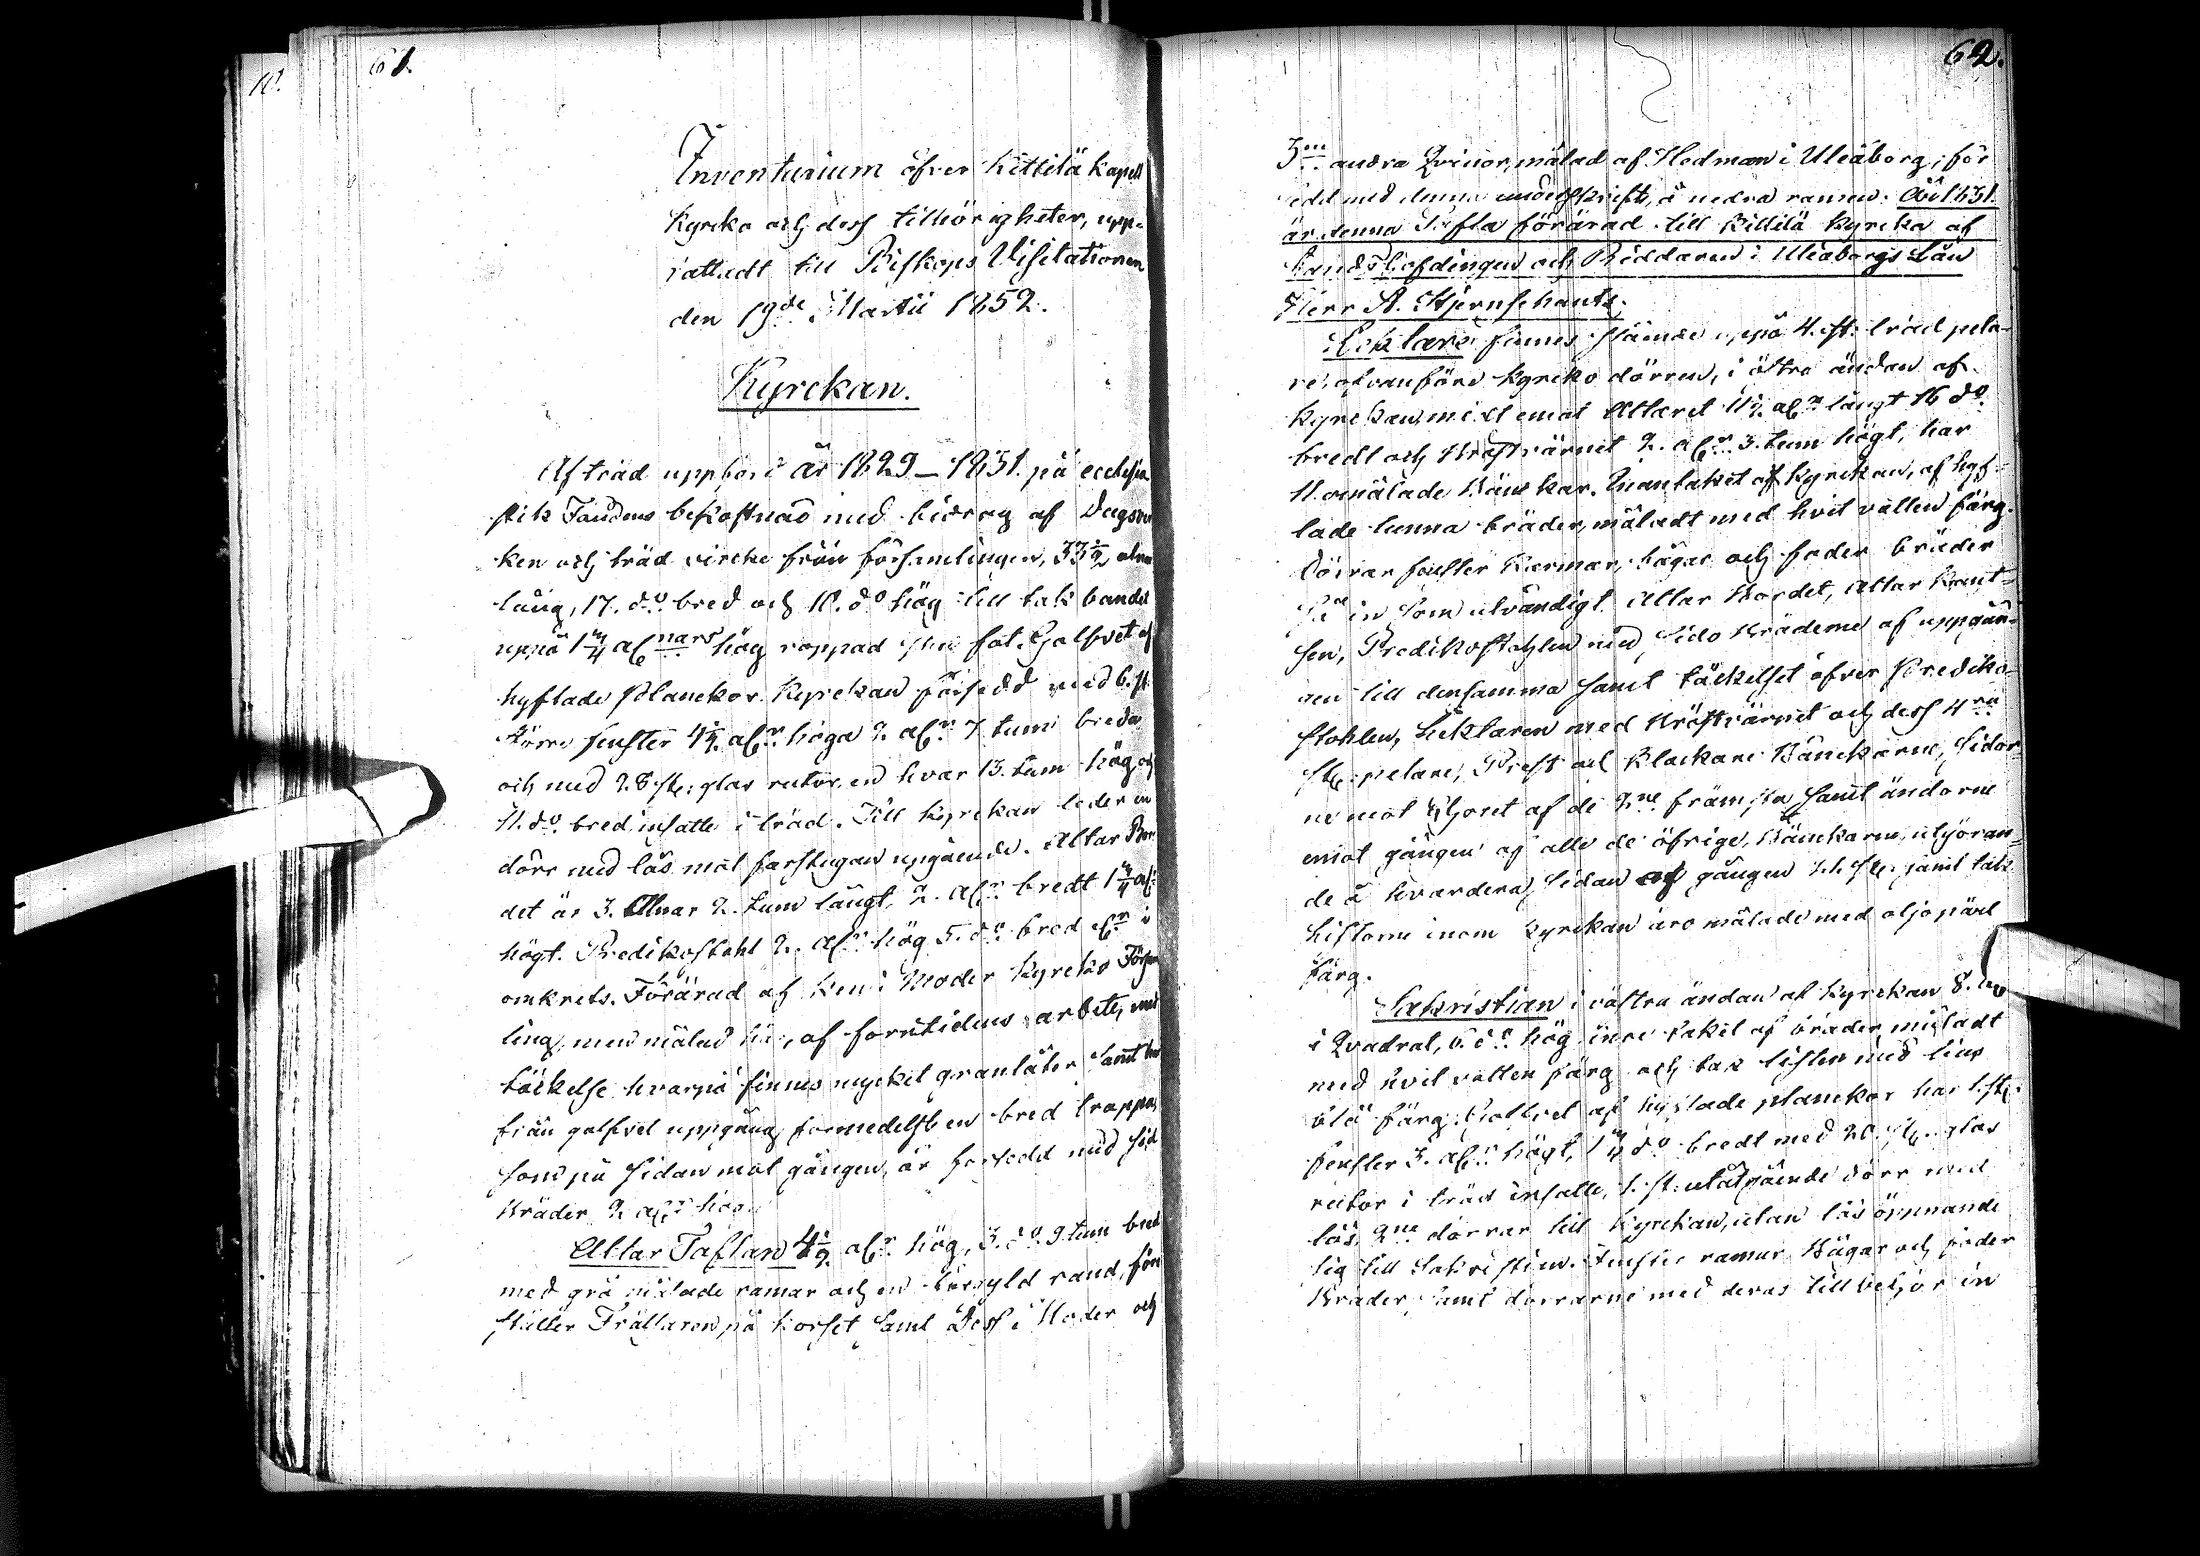 61.
Inventarium öfver Kittilä Kapell
Kyrcko och dess tillhörigheter, upp-
rättadt till Biskops Visitationen
den 19de Martii 1852.
Kyrckan.
Af träd uppförd år 1829–1831. på ecclesia
stik Fondens bekostnad med bidrag af Dagsver
ken och träd virche från församlingen, 33½ alnar
lång, 17. do bred och 10. do hög till tak bandet
uppå 1¼ alnars hög rappad sten fot. Golfvet af
hyflade Planckor. Kyrckan försedd med 6. st.
större fenster 4½ alnr höga 2 alnr 7 tum breda
och med 28 st: glas rutor, en hvar 13. tum hög och
11. do bred, infatte i träd. Till Kyrckan leder en
dörr med lås mot farstugan upgående. Altar Bor
det är 3. Alnar 2. tum långt, 2. alnr bredt 1¼ aln
högt. Predikostohl 2. alnr hög 5. do bred alnr i
omkrets. Förärad af Kemi Moder Kyrcko Försam
ling, men målad här, af forntidens arbete, med
täckelse hvarpå finnes mycket granlåter samt har
från golfvet uppgång formedelst en bred trappa,
som på sidan mot gången, är försedd med sid
bräder 2 alnr hög.
Altar Taflan 4½ alnr hög, 3. do 9. tum bred
med grå målade ramar och en förgyld rand, före
ställer Frälsaren på korset samt Dess Moder och
62.
3ne andra Qvinor, målad af Hedman i Uleåborg, för
sedd med denna underskrift, å nedra ramen: År 1831.
är denna Tafla förärad till Kittilä Kyrcka af
Landshöfdingen och Riddaren i Uleåborgs Län
Herr A. Stjernschantz.
Lecktare finnes stående uppå 4. st. träd pela-
re, ofvanföre Kyrcko dörren, i östra ändan af
Kyrckan, midt emot Altaret 11½ alnr långt 16 do
bredt och bröstvärnet 2. alnr 3. tum högt, har
11. omålade Bänckar. Innantaket af Kyrckan, af hyf-
lade tunna bräder, måladt med hvit vatten färg.
Dörrar fenster karmar, bågar och foder bräder
så in som utvändigt. Altar Bordet, Altar krant-
sen, Predikostohlen med sido bräderne af uppgån-
gen till densamma samt täckelset öfver Prediko-
stohlen, Lecktaren med bröstvärnet och dess 4ra
st: pelare, Prest och Klockare Bänckarne, sidor-
ne mot Choret af de 2ne främsta samt ändorne
emot gången af alle de öfrige Bänckarne, utgöran-
de å hvardera sidan af gången 21. st. jämt tak
listorne inom Kyrckan äro målade med oljo pärl
färg.
Sakristian i västra ändan af Kyrckan 8. alnr
i Qvadrat, 6. do hög, inre taket af bräder, måladt
med hvit vatten färg och tak listen med ljus
blå färg. Golfvet af hyflade planckor har 1. st.
fenster 3. alnr högt, 1¼ do bredt med 20. st. glas
rutor i träd infatte, 1. st: utåtgående dörr med
lås, 2ne dörrar till Kyrckan, utan lås öppnande
sig till Sakristian. Fenster ramar bågar och foder
bräder samt dörrarne med deras tillbehör in